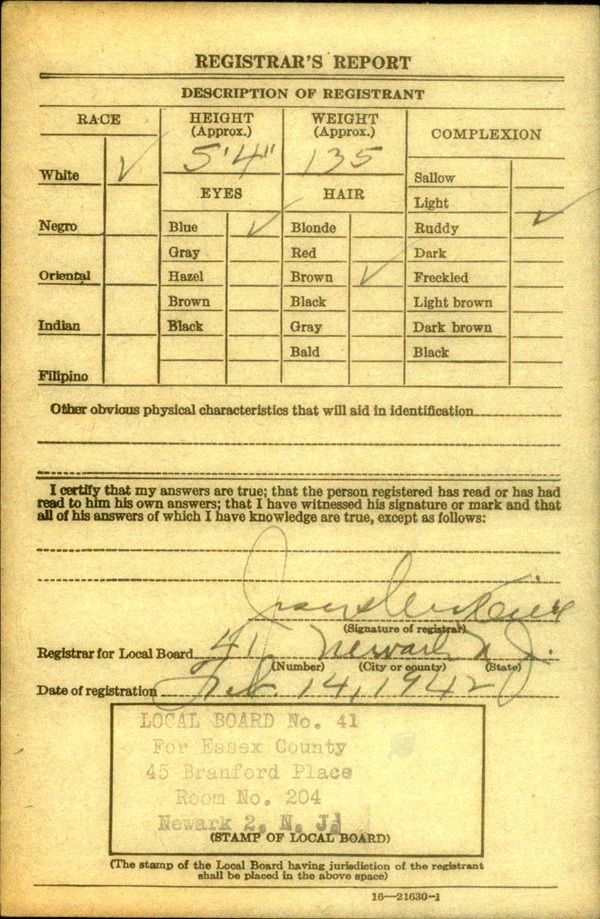 REGISTRAR'S REPORT
DESCRIPTION OF REGISTRANT
RACE
HEIGHT
(Approx.)
WEIGHT
(Approx.)
COMPLEXION
5'4"
135
White
Sallow
EYES
HAIR
Light
Negro
Blue
Blonde
Ruddy
Gray
Red
Dark
Oriental
Hazel
Brown
Freckled
Brown
Black
Light brown
Indian
Black
Gray
Dark brown
Bald
Black
Filipino
Other obvious physical characteristics that will aid in identification
I certify that my answers are true; that the person registered has read or has had
read to him his own answers; that I have witnessed his signature or mark and that
all of his answers of which I have knowledge are true, except as follows:
(Signature of registrar)
Registrar for Local Board 41 Newark N.J.
(Number) (City or county) (State)
Date of registration Feb. 14, 1942
LOCAL BOARD No. 41
For Essex County
45 Branford Place
Room No. 204
Newark 2, N. J.
(STAMP OF LOCAL BOARD)
(The stamp of the Local Board having jurisdiction of the registrant
shall be placed in the above space)
16—21630-1